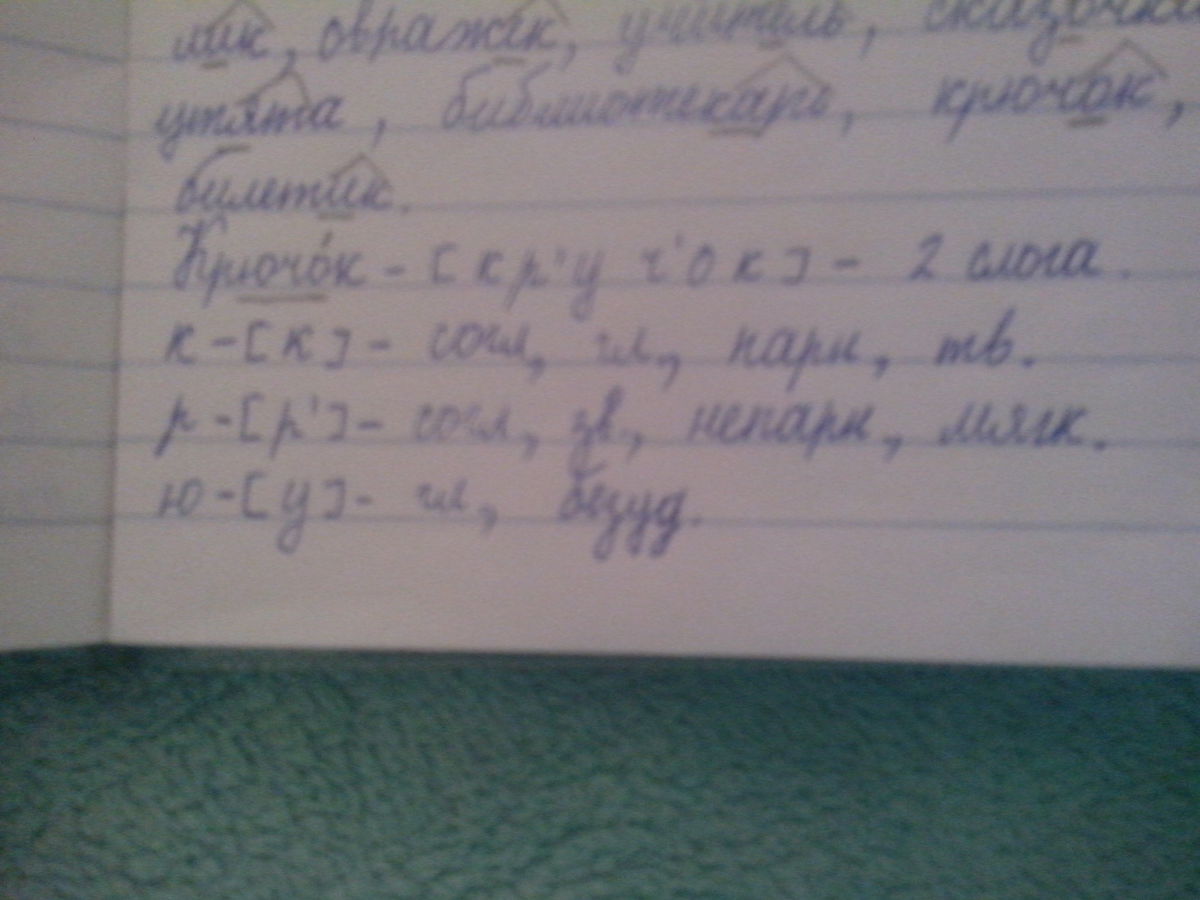 лик, овражек, учитель, сказочка
утята, библиотекарь, крючок,
билетик.
Крючо́к - [кр'у ч'ок] - 2 слога.
к - [к] - согл, гл, парн, тв.
р - [р'] - согл, зв, непарн, мягк.
ю - [у] - гл, безуд.